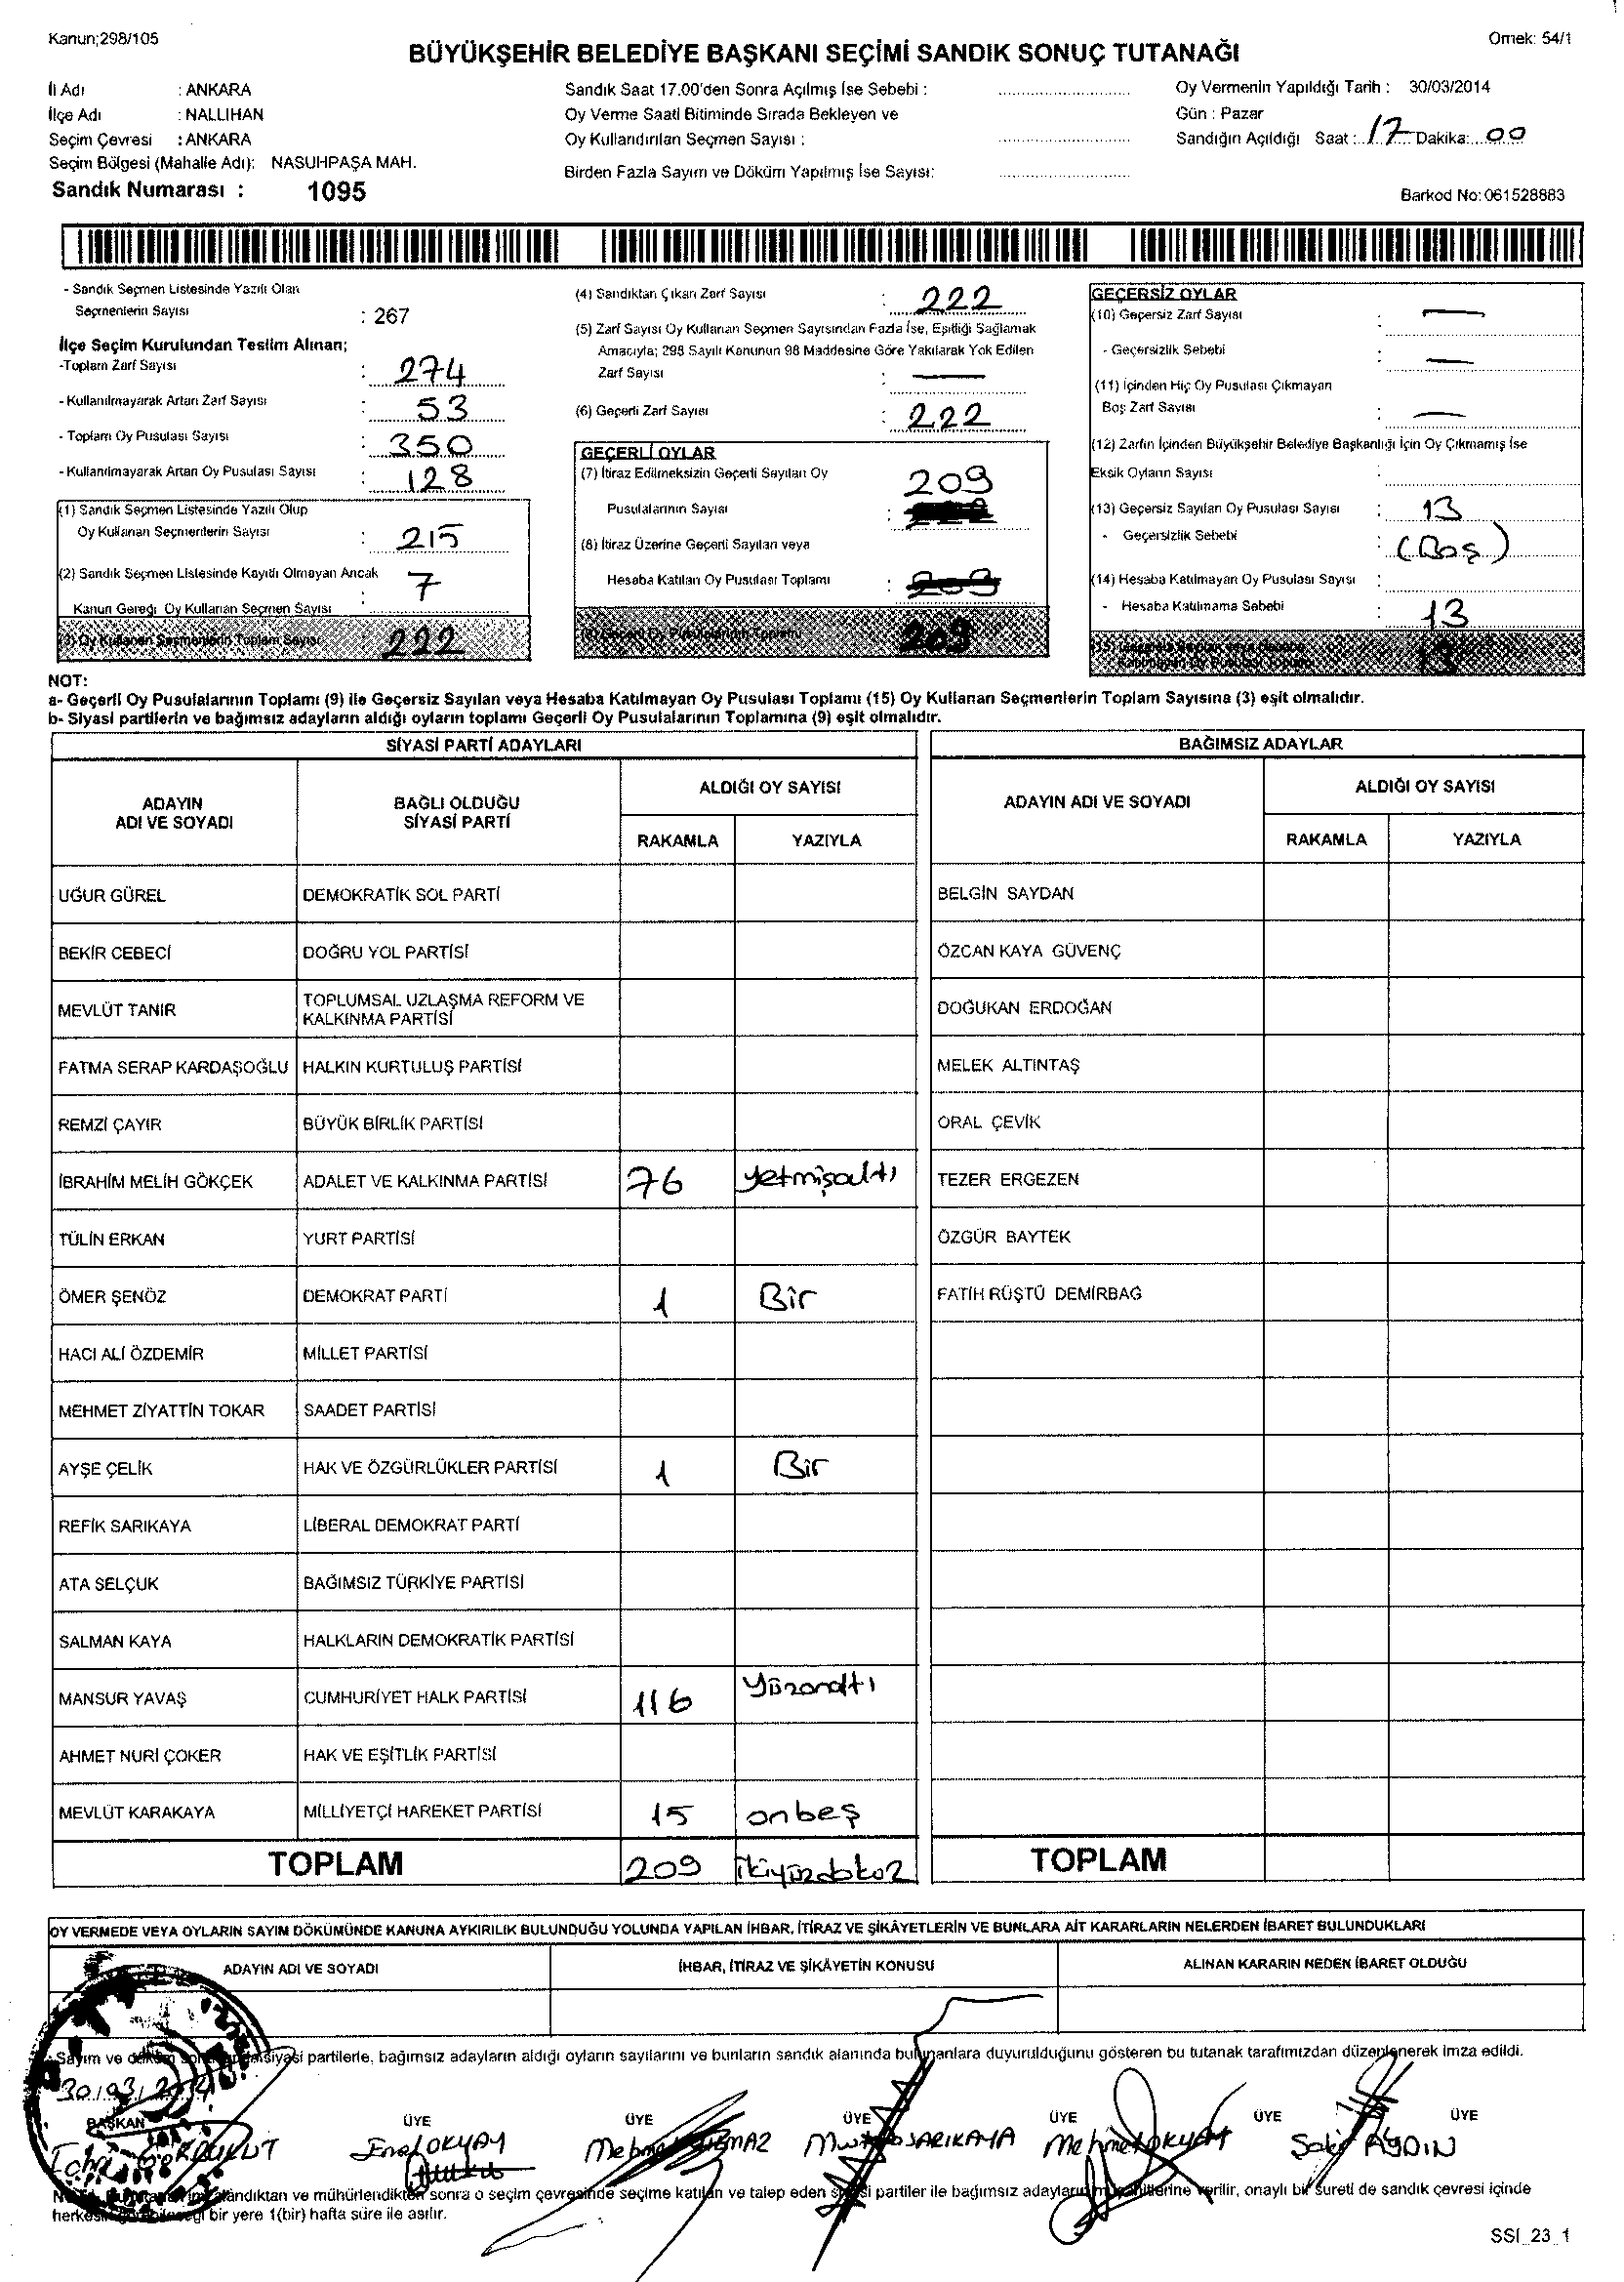 Kanun;298/105
Örnek: 54/1
BÜYÜKŞEHİR BELEDİYE BAŞKANI SEÇİMİ SANDIK SONUÇ TUTANAĞI
İli Adı : ANKARA
İlçe Adı : NALLIHAN
Seçim Çevresi : ANKARA
Seçim Bölgesi (Mahalle Adı): NASUHPAŞA MAH.
Sandık Numarası : 1095
Sandık Saat 17.00'den Sonra Açılmış İse Sebebi :
Oy Verme Saati Bitiminde Sırada Bekleyen ve
Oy Kullandırılan Seçmen Sayısı :
Birden Fazla Sayım ve Döküm Yapılmış İse Sayısı:
Oy Vermenin Yapıldığı Tarih : 30/03/2014
Gün : Pazar
Sandığın Açıldığı Saat : 17 Dakika: 00
Barkod No: 061528883
- Sandık Seçmen Listesinde Yazılı Olan
Seçmenlerin Sayısı : 267
İlçe Seçim Kurulundan Teslim Alınan;
-Toplam Zarf Sayısı : 274
- Kullanılmayarak Artan Zarf Sayısı : 53
- Toplam Oy Pusulası Sayısı : 350
- Kullanılmayarak Artan Oy Pusulası Sayısı : 128
(1) Sandık Seçmen Listesinde Yazılı Olup
Oy Kullanan Seçmenlerin Sayısı : 215
(2) Sandık Seçmen Listesinde Kayıtlı Olmayan Ancak
Kanun Gereği Oy Kullanan Seçmen Sayısı : 7
(3) Oy Kullanan Seçmenlerin Toplam Sayısı : 222
(4) Sandıktan Çıkan Zarf Sayısı : 222
(5) Zarf Sayısı Oy Kullanan Seçmen Sayısından Fazla İse, Eşitliği Sağlamak
Amacıyla; 298 Sayılı Kanunun 98 Maddesine Göre Yakılarak Yok Edilen
Zarf Sayısı : —
(6) Geçerli Zarf Sayısı : 222
GEÇERLİ OYLAR
(7) İtiraz Edilmeksizin Geçerli Sayılan Oy
Pusulalarının Sayısı : 209
(8) İtiraz Üzerine Geçerli Sayılan veya
Hesaba Katılan Oy Pusulası Toplamı : 209
(9) Geçerli Oy Pusulalarının Toplamı 209
GEÇERSİZ OYLAR
(10) Geçersiz Zarf Sayısı : —
- Geçersizlik Sebebi : —
(11) İçinden Hiç Oy Pusulası Çıkmayan
Boş Zarf Sayısı : —
(12) Zarfın İçinden Büyükşehir Belediye Başkanlığı İçin Oy Çıkmamış İse
Eksik Oyların Sayısı :
(13) Geçersiz Sayılan Oy Pusulası Sayısı : 13
- Geçersizlik Sebebi : (Boş)
(14) Hesaba Katılmayan Oy Pusulası Sayısı :
- Hesaba Katılmama Sebebi : 13
13
NOT:
a- Geçerli Oy Pusulalarının Toplamı (9) ile Geçersiz Sayılan veya Hesaba Katılmayan Oy Pusulası Toplamı (15) Oy Kullanan Seçmenlerin Toplam Sayısına (3) eşit olmalıdır.
b- Siyasi partilerin ve bağımsız adayların aldığı oyların toplamı Geçerli Oy Pusulalarının Toplamına (9) eşit olmalıdır.
SİYASİ PARTİ ADAYLARI
ADAYIN ADI VE SOYADI
BAĞLI OLDUĞU SİYASİ PARTİ
ALDIĞI OY SAYISI
RAKAMLA YAZIYLA
UĞUR GÜREL DEMOKRATİK SOL PARTİ
BEKİR CEBECİ DOĞRU YOL PARTİSİ
MEVLÜT TANIR TOPLUMSAL UZLAŞMA REFORM VE
KALKINMA PARTİSİ
FATMA SERAP KARDAŞOĞLU HALKIN KURTULUŞ PARTİSİ
REMZİ ÇAYIR BÜYÜK BİRLİK PARTİSİ
İBRAHİM MELİH GÖKÇEK ADALET VE KALKINMA PARTİSİ 76 yetmişaltı
TÜLİN ERKAN YURT PARTİSİ
ÖMER ŞENÖZ DEMOKRAT PARTİ 1 Bir
HACI ALİ ÖZDEMİR MİLLET PARTİSİ
MEHMET ZİYATTİN TOKAR SAADET PARTİSİ
AYŞE ÇELİK HAK VE ÖZGÜRLÜKLER PARTİSİ 1 Bir
REFİK SARIKAYA LİBERAL DEMOKRAT PARTİ
ATA SELÇUK BAĞIMSIZ TÜRKİYE PARTİSİ
SALMAN KAYA HALKLARIN DEMOKRATİK PARTİSİ
MANSUR YAVAŞ CUMHURİYET HALK PARTİSİ 116 yüzonaltı
AHMET NURİ ÇOKER HAK VE EŞİTLİK PARTİSİ
MEVLÜT KARAKAYA MİLLİYETÇİ HAREKET PARTİSİ 15 onbeş
TOPLAM 209 ikiyüzdokuz
BAĞIMSIZ ADAYLAR
ADAYIN ADI VE SOYADI
ALDIĞI OY SAYISI
RAKAMLA YAZIYLA
BELGİN SAYDAN
ÖZCAN KAYA GÜVENÇ
DOĞUKAN ERDOĞAN
MELEK ALTINTAŞ
ORAL ÇEVİK
TEZER ERGEZEN
ÖZGÜR BAYTEK
FATİH RÜŞTÜ DEMİRBAĞ
TOPLAM
OY VERMEDE VEYA OYLARIN SAYIM DÖKÜMÜNDE KANUNA AYKIRILIK BULUNDUĞU YOLUNDA YAPILAN İHBAR, İTİRAZ VE ŞİKÂYETLERİN VE BUNLARA AİT KARARLARIN NELERDEN İBARET BULUNDUKLARI
ADAYIN ADI VE SOYADI İHBAR, İTİRAZ VE ŞİKÂYETİN KONUSU ALINAN KARARIN NEDEN İBARET OLDUĞU
Sayım ve döküm siyasi partilerle, bağımsız adayların aldığı oyların sayılarını ve bunların sandık alanında bulunanlara duyurulduğunu gösteren bu tutanak tarafımızdan düzenlenerek imza edildi.
30/03/2014
BAŞKAN ÜYE ÜYE ÜYE ÜYE ÜYE ÜYE
OKYAY Mehmet YILMAZ Mustafa SARIKAYA Mehmet OKYAY AYDIN
sonra o seçim çevresinde seçime katılan ve talep eden siyasi partiler ile bağımsız adayların müşahitlerine verilir, onaylı bir sureti de sandık çevresi içinde
bir yere 1(bir) hafta süre ile asılır.
SSI_23_1